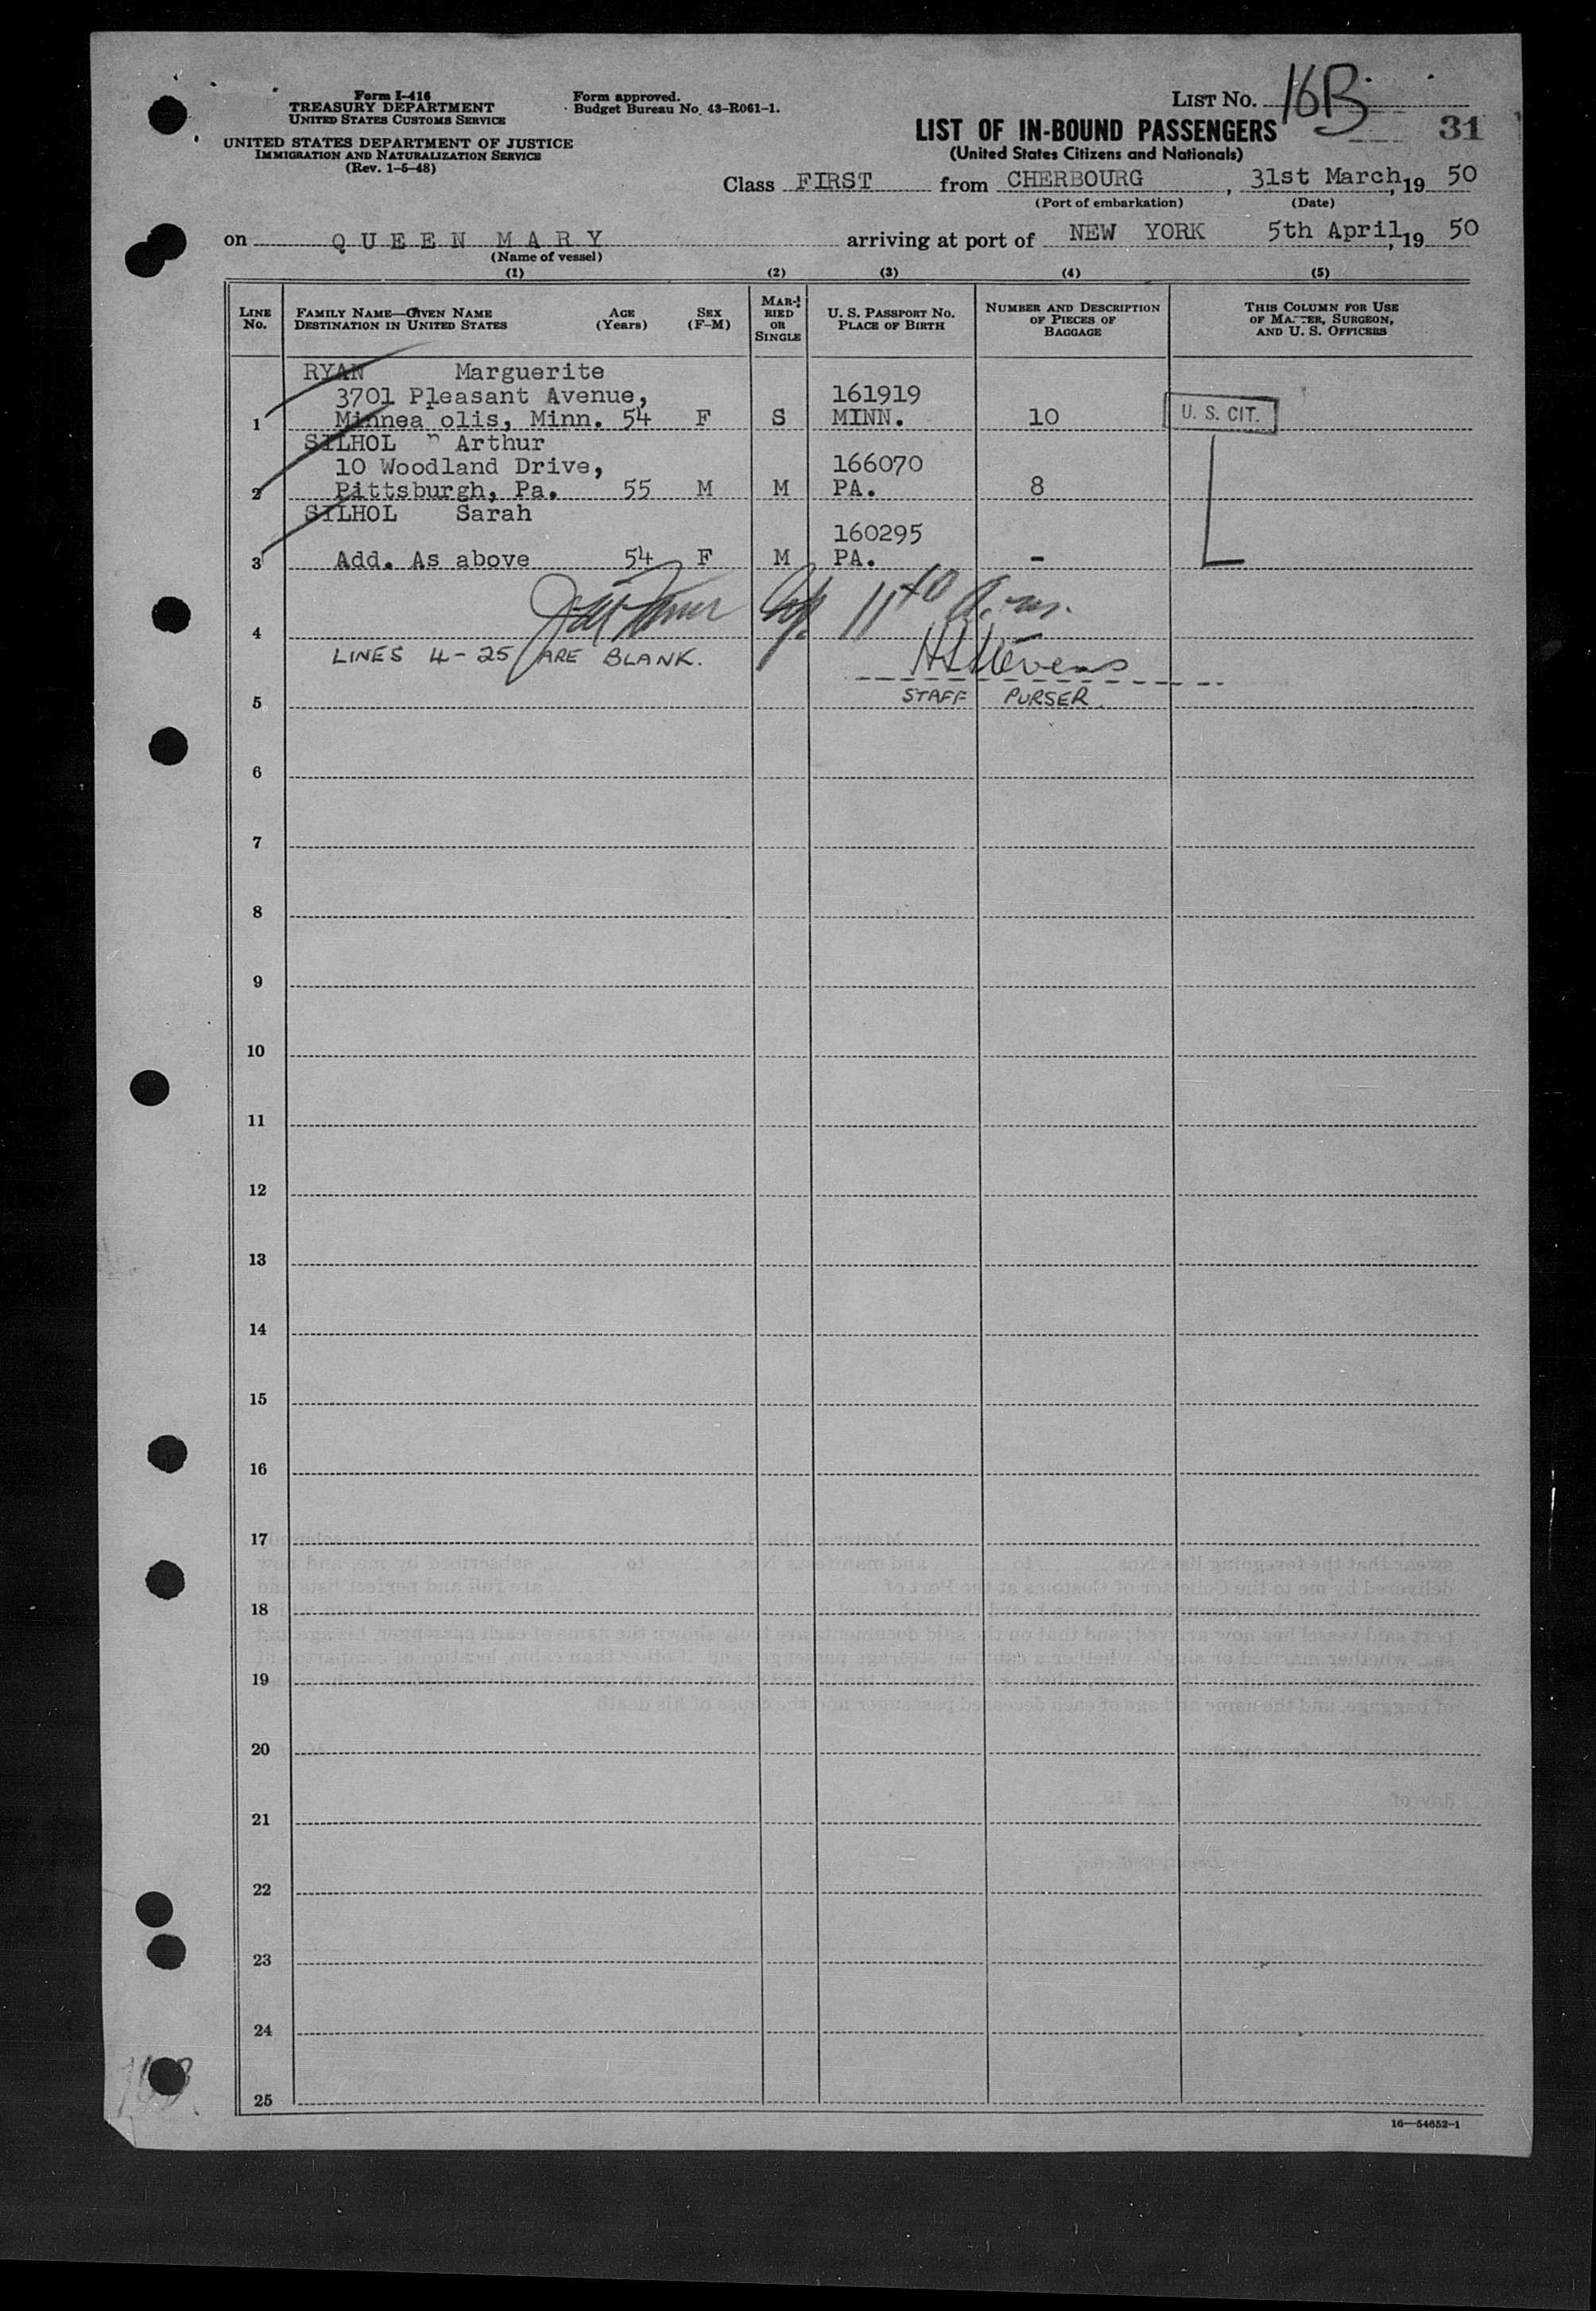 Form I-416
TREASURY DEPARTMENT
UNITED STATES CUSTOMS SERVICE
UNITED STATES DEPARTMENT OF JUSTICE
IMMIGRATION AND NATURALIZATION SERVICE
(Rev. 1-5-48)
Form approved.
Budget Bureau No. 43-R061-1.
LIST NO. 16B
31
LIST OF IN-BOUND PASSENGERS
(United States Citizens and Nationals)
Class FIRST from CHERBOURG, 31st March, 19 50
(Port of embarkation) (Date)
on QUEEN MARY arriving at port of NEW YORK 5th April, 19 50
(Name of vessel)
(1) (2) (3) (4) (5)
LINE NO.
FAMILY NAME—GIVEN NAME AGE SEX
DESTINATION IN UNITED STATES (Years) (F-M)
MARRIED OR SINGLE
U. S. PASSPORT NO.
PLACE OF BIRTH
NUMBER AND DESCRIPTION
OF PIECES OF
BAGGAGE
THIS COLUMN FOR USE
OF MASTER, SURGEON,
AND U. S. OFFICERS
RYAN Marguerite
3701 Pleasant Avenue, 161919
1 Minnea olis, Minn. 54 F S MINN. 10 U. S. CIT.
SILHOL p Arthur
10 Woodland Drive, 166070
2 Pittsburgh, Pa. 55 M M PA. 8
SILHOL Sarah
160295
3 Add. As above 54 F M PA. -
4
LINES 4-25 ARE BLANK. HL Stevens
5 STAFF PURSER
6
7
8
9
10
11
12
13
14
15
16
17
18
19
20
21
22
23
24
25
16—54652-1